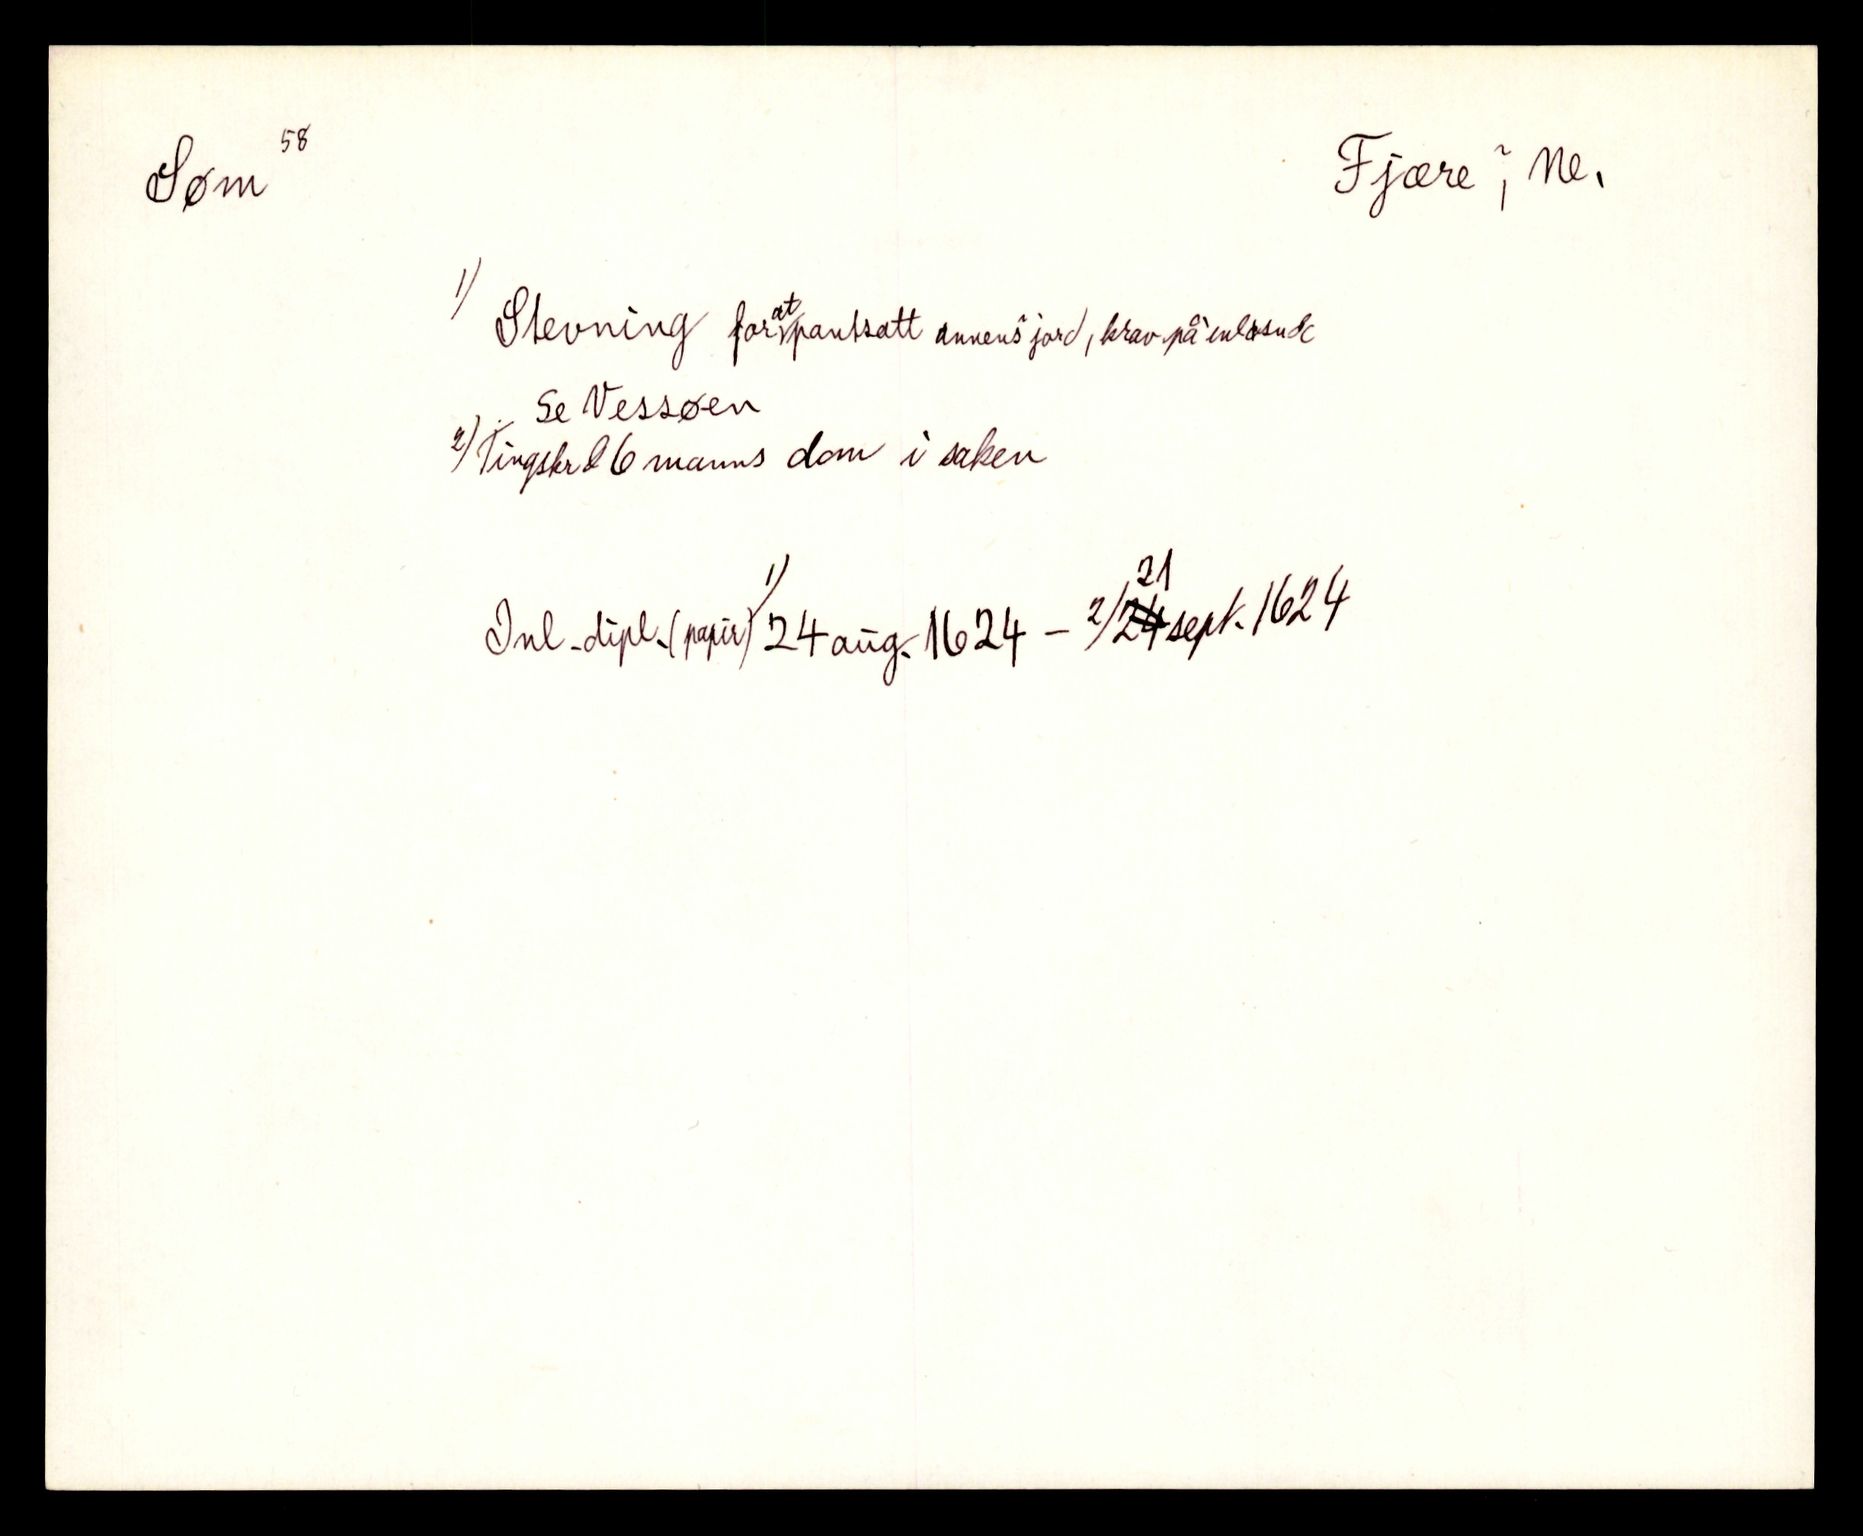 Søm 58
Fjære, Ne.
1) Stevning for at pantsatt annens jord, krav på
Se Vessøen
2) Tingskr & 6 manns dom i saken
Inl.-dipl. (papir) 1) 24 aug. 1624 – 2) 21 sept. 1624